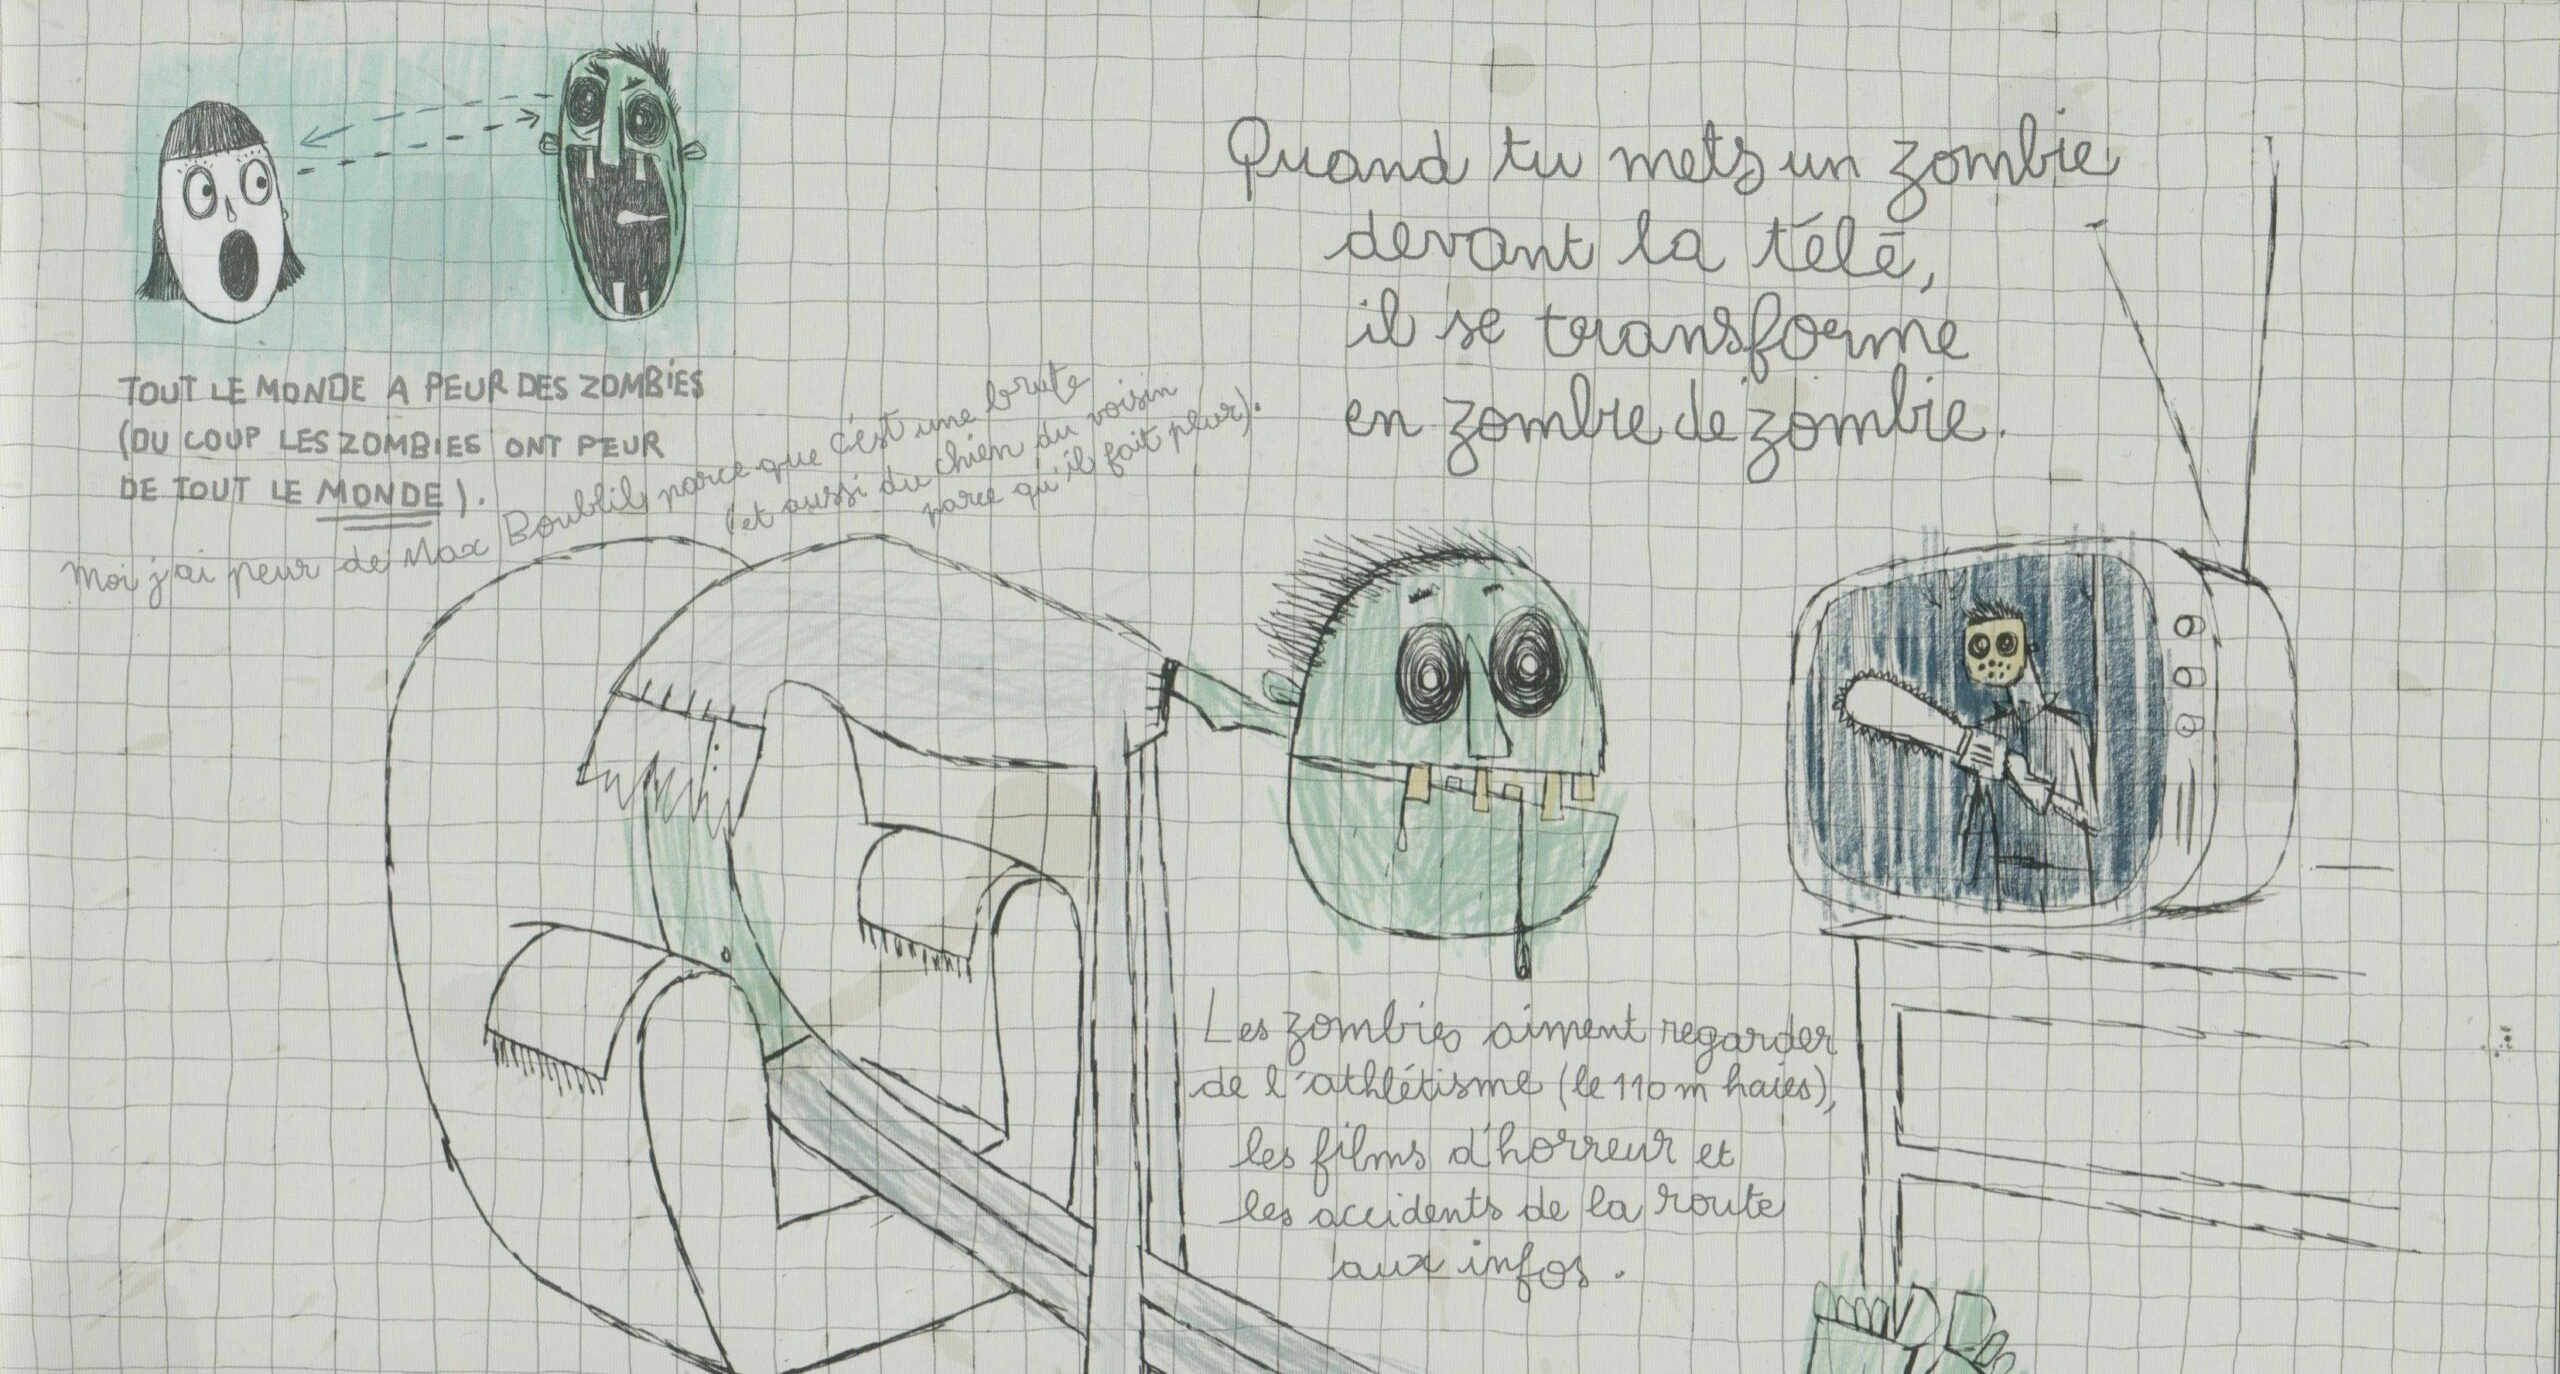 TOUT LE MONDE A PEUR DES ZOMBIES
(DU COUP LES ZOMBIES ONT PEUR
DE TOUT LE MONDE).
Moi j'ai peur de Max Boublil, parce que c'est une brute
(et aussi du chien du voisin
parce qu'il fait peur).
Quand tu mets un zombie
devant la télé,
il se transforme
en zombie de zombie.
Les zombies aiment regarder
de l'athlétisme (le 110 m haies),
les films d'horreur et
les accidents de la route
aux infos.